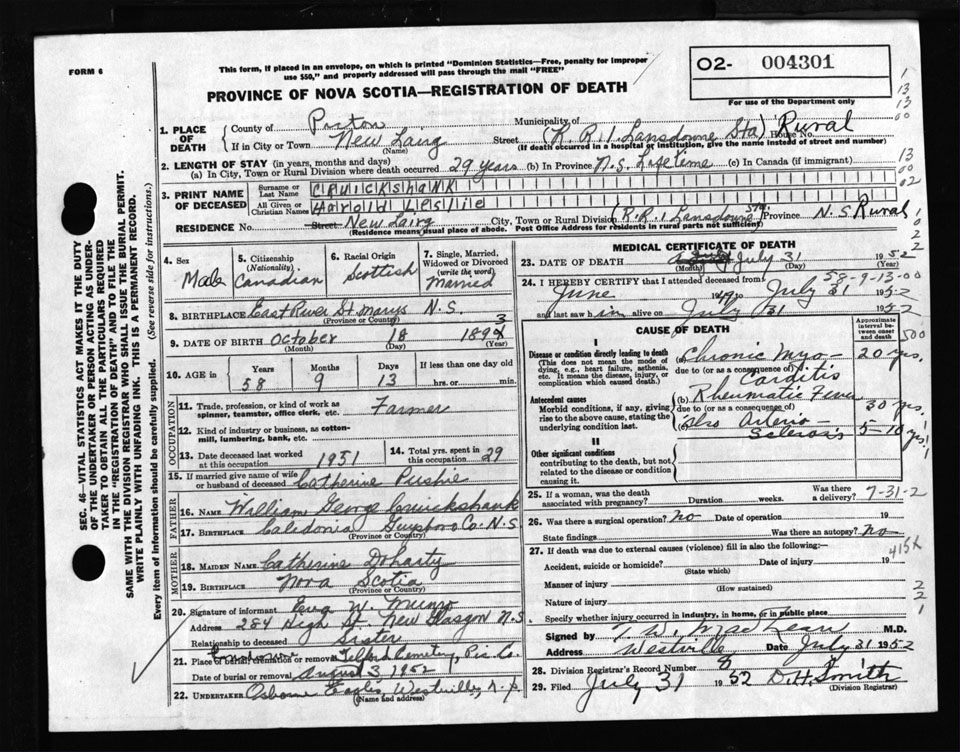 FORM 6
This form, if placed in an envelope, on which is printed "Dominion Statistics—Free, penalty for improper
use $50," and properly addressed will pass through the mail "FREE"
PROVINCE OF NOVA SCOTIA—REGISTRATION OF DEATH
O2- 004301
For use of the Department only
1. PLACE OF DEATH
County of Pictou Municipality of
If in City or Town New Lairg Street (R.R.1. Lansdowne Sta) House No. Rural
(Name) (If death occurred in a hospital or institution, give the name instead of street and number)
2. LENGTH OF STAY (in years, months and days)
(a) In City, Town or Rural Division where death occurred 29 years (b) In Province N.S. Lifetime (c) In Canada (if immigrant)
3. PRINT NAME OF DECEASED
Surname or Last Name CRUICKSHANK
All Given or Christian Names Harold Leslie
RESIDENCE No. Street New Lairg City, Town or Rural Division (R.R.1 Lansdowne Sta. Province N.S Rural
(Residence means usual place of abode. Post Office Address for residents in rural parts not sufficient)
4. Sex Male
5. Citizenship (Nationality) Canadian
6. Racial Origin Scottish
7. Single, Married, Widowed or Divorced (write the word) Married
8. BIRTHPLACE East River St. Marys N.S.
(Province or Country)
9. DATE OF BIRTH October 18 189 3
(Month) (Day) (Year)
10. AGE Years 58 Months 9 Days 13 If less than one day hrs. or min.
OCCUPATION
11. Trade, profession, or kind of work as spinner, teamster, office clerk, etc. Farmer
12. Kind of industry or business, as cotton-mill, lumbering, bank, etc.
13. Date deceased last worked at this occupation 1951
14. Total yrs. spent in this occupation 29
15. If married give name of wife or husband of deceased Catherine
FATHER
16. NAME William George Cruickshank
17. BIRTHPLACE Caledonia Guysboro Co. N.S
(Province or Country)
MOTHER
18. MAIDEN NAME Catherine Doharty
19. BIRTHPLACE Nova Scotia
(Province or Country)
20. Signature of informant W. Munro
Address 284 High St. New Glasgow N.S
Relationship to deceased Sister
21. Place of burial, cremation or removal Telford Cemetery, Pic. Co.
Date of burial or removal August 3, 1952
22. UNDERTAKER Osborne Westville, N.S.
(Name and address)
MEDICAL CERTIFICATE OF DEATH
23. DATE OF DEATH July 31 1952
(Month) (Day) (Year)
58-9-13-00
24. I HEREBY CERTIFY that I attended deceased from
June 19 July 31 1952
and last saw him alive on July 31 1952
CAUSE OF DEATH
Approximate interval between onset and death
I
Disease or condition directly leading to death
(This does not mean the mode of dying, e.g., heart failure, asthenia, etc. It means the disease, injury, or complication which caused death.)
(a) Chronic Myo- 20 yrs.
due to (or as a consequence of) Carditis
Antecedent causes
Morbid conditions, if any, giving rise to the above cause, stating the underlying condition last.
(b) Rheumatic Fever 30 yrs.
due to (or as a consequence of)
Also Arterio- Sclerosis 5-10 yrs
II
Other significant conditions
contributing to the death, but not related to the disease or condition causing it.
25. If a woman, was the death associated with pregnancy? Duration weeks. Was there a delivery? 7-31-2
26. Was there a surgical operation? No Date of operation 19
State findings Was there an autopsy? No
27. If death was due to external causes (violence) fill in also the following:—
Accident, suicide or homicide? Date of injury 19
(State which)
Manner of injury
(How sustained)
Nature of injury
Specify whether injury occurred in industry, in home, or in public place
Signed by MacLean M.D.
Address Westville Date July 31 1952
28. Division Registrar's Record Number 8
29. Filed July 31 1952 D.H. Smith
(Division Registrar)
SEC. 46—VITAL STATISTICS ACT MAKES IT THE DUTY
OF THE UNDERTAKER OR PERSON ACTING AS UNDER-
TAKER TO OBTAIN ALL THE PARTICULARS REQUIRED
IN THE "REGISTRATION OF DEATH" AND TO FILE THE
SAME WITH THE DIVISION REGISTRAR WHO SHALL ISSUE THE BURIAL PERMIT.
WRITE PLAINLY WITH UNFADING INK. THIS IS A PERMANENT RECORD.
Every item of information should be carefully supplied. (See reverse side for instructions.)